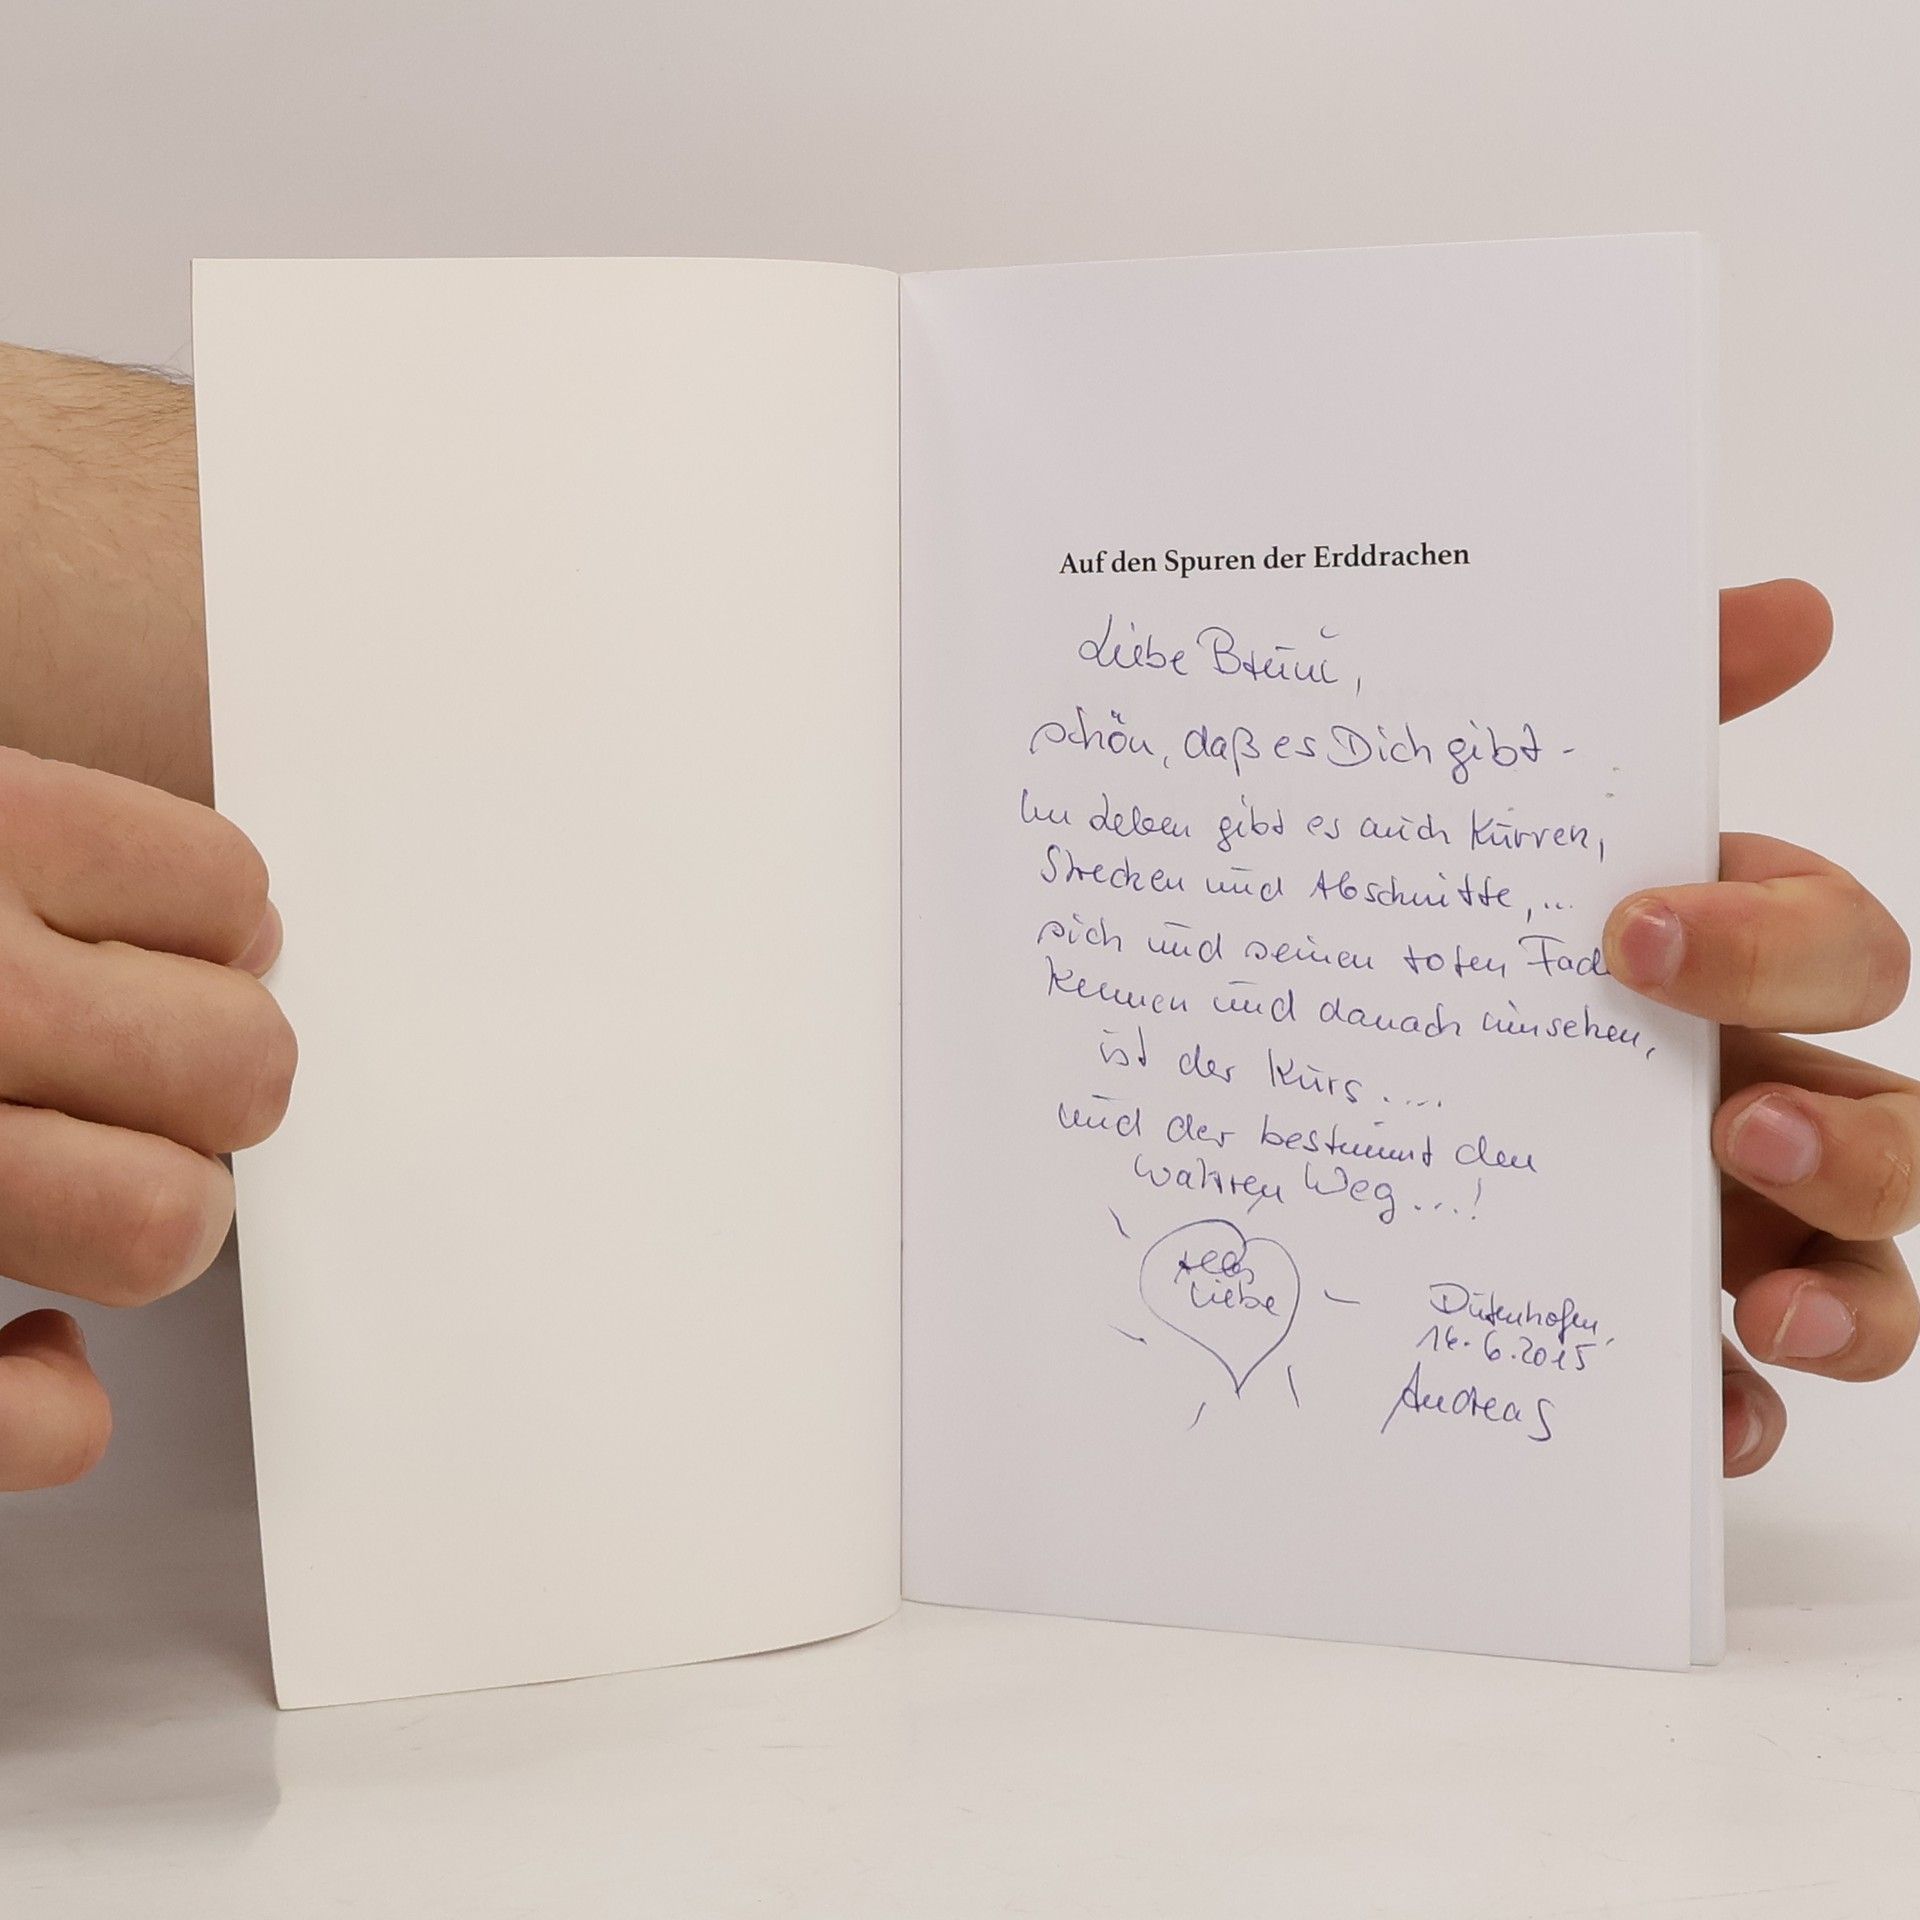 Auf den Spuren der Erddrachen
Liebe Bruni,
schön, daß es Dich gibt -
Im Leben gibt es auch Kurven,
Strecken und Abschnitte,...
sich und seinen roten Fad
kennen und danach umsehen,
ist der Kurs....
und der bestimmt den
wahren Weg...!
Alles
Liebe
Dutenhofen,
16.6.2015
Andreas